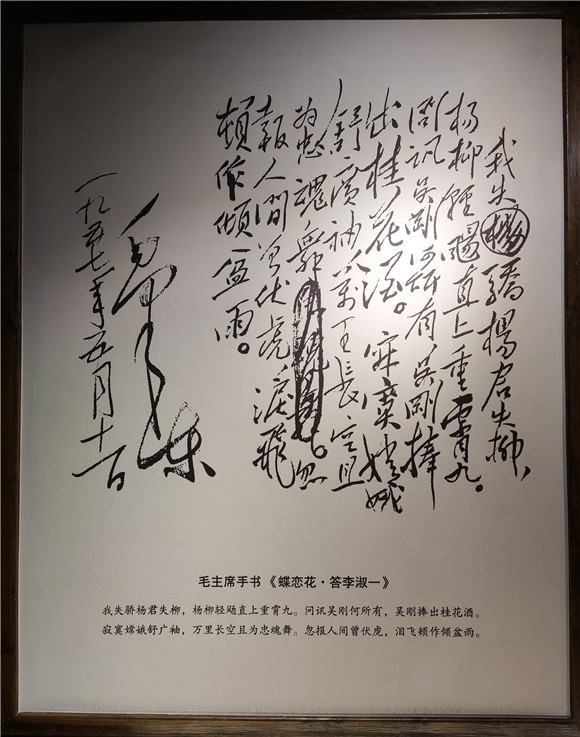 我失驕楊君失柳，
杨柳輕颺直上重霄九。
問訊吴剛何所有吴剛捧
出桂花酒。寂寞嫦娥
舒廣袖萬里長空且
为忠魂舞。忽
報人間曾伏虎淚飛
頓作傾盆雨。
毛泽东
一九五七年五月十一日
毛主席手书《蝶恋花·答李淑一》
我失骄杨君失柳，杨柳轻飏直上重霄九。问讯吴刚何所有，吴刚捧出桂花酒。
寂寞嫦娥舒广袖，万里长空且为忠魂舞。忽报人间曾伏虎，泪飞顿作倾盆雨。